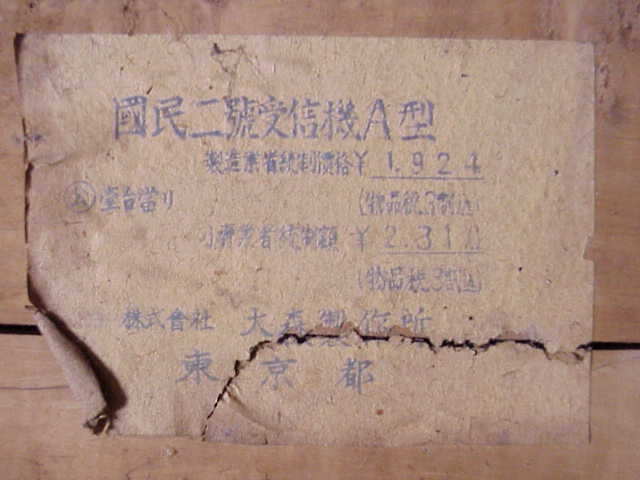 國民二號受信機A型
製造業者統制價格¥1,924
公 壹台當り (物品税3割込)
小賣業者統制額 ¥2,310
(物品税3割込)
株式會社 大森製作所
東京都